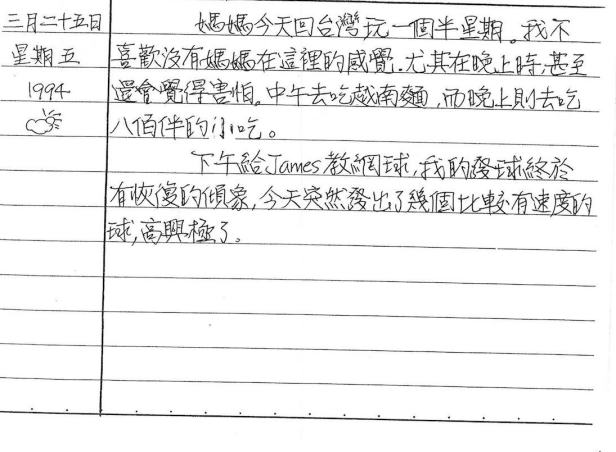 三月二十五日
星期五
1994
媽媽今天回台灣玩一個半星期。我不
喜歡沒有媽媽在這裡的感覺.尤其在晚上時,甚至
還會覺得害怕。中午去吃越南麵,而晚上則去吃
八佰伴的小吃。
下午給James教網球,我的發球終於
有恢復的傾象,今天突然發出了幾個比較有速度的
球,高興極了。